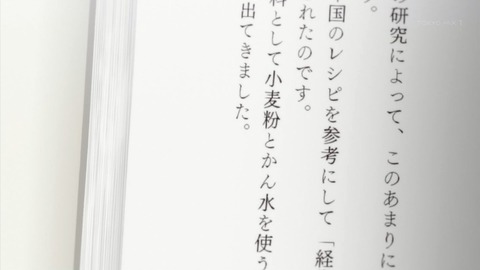 研究によって、このあまりに
す。
国のレシピを参考にして「経
れたのです。
料として小麦粉とかん水を使う
出てきました。